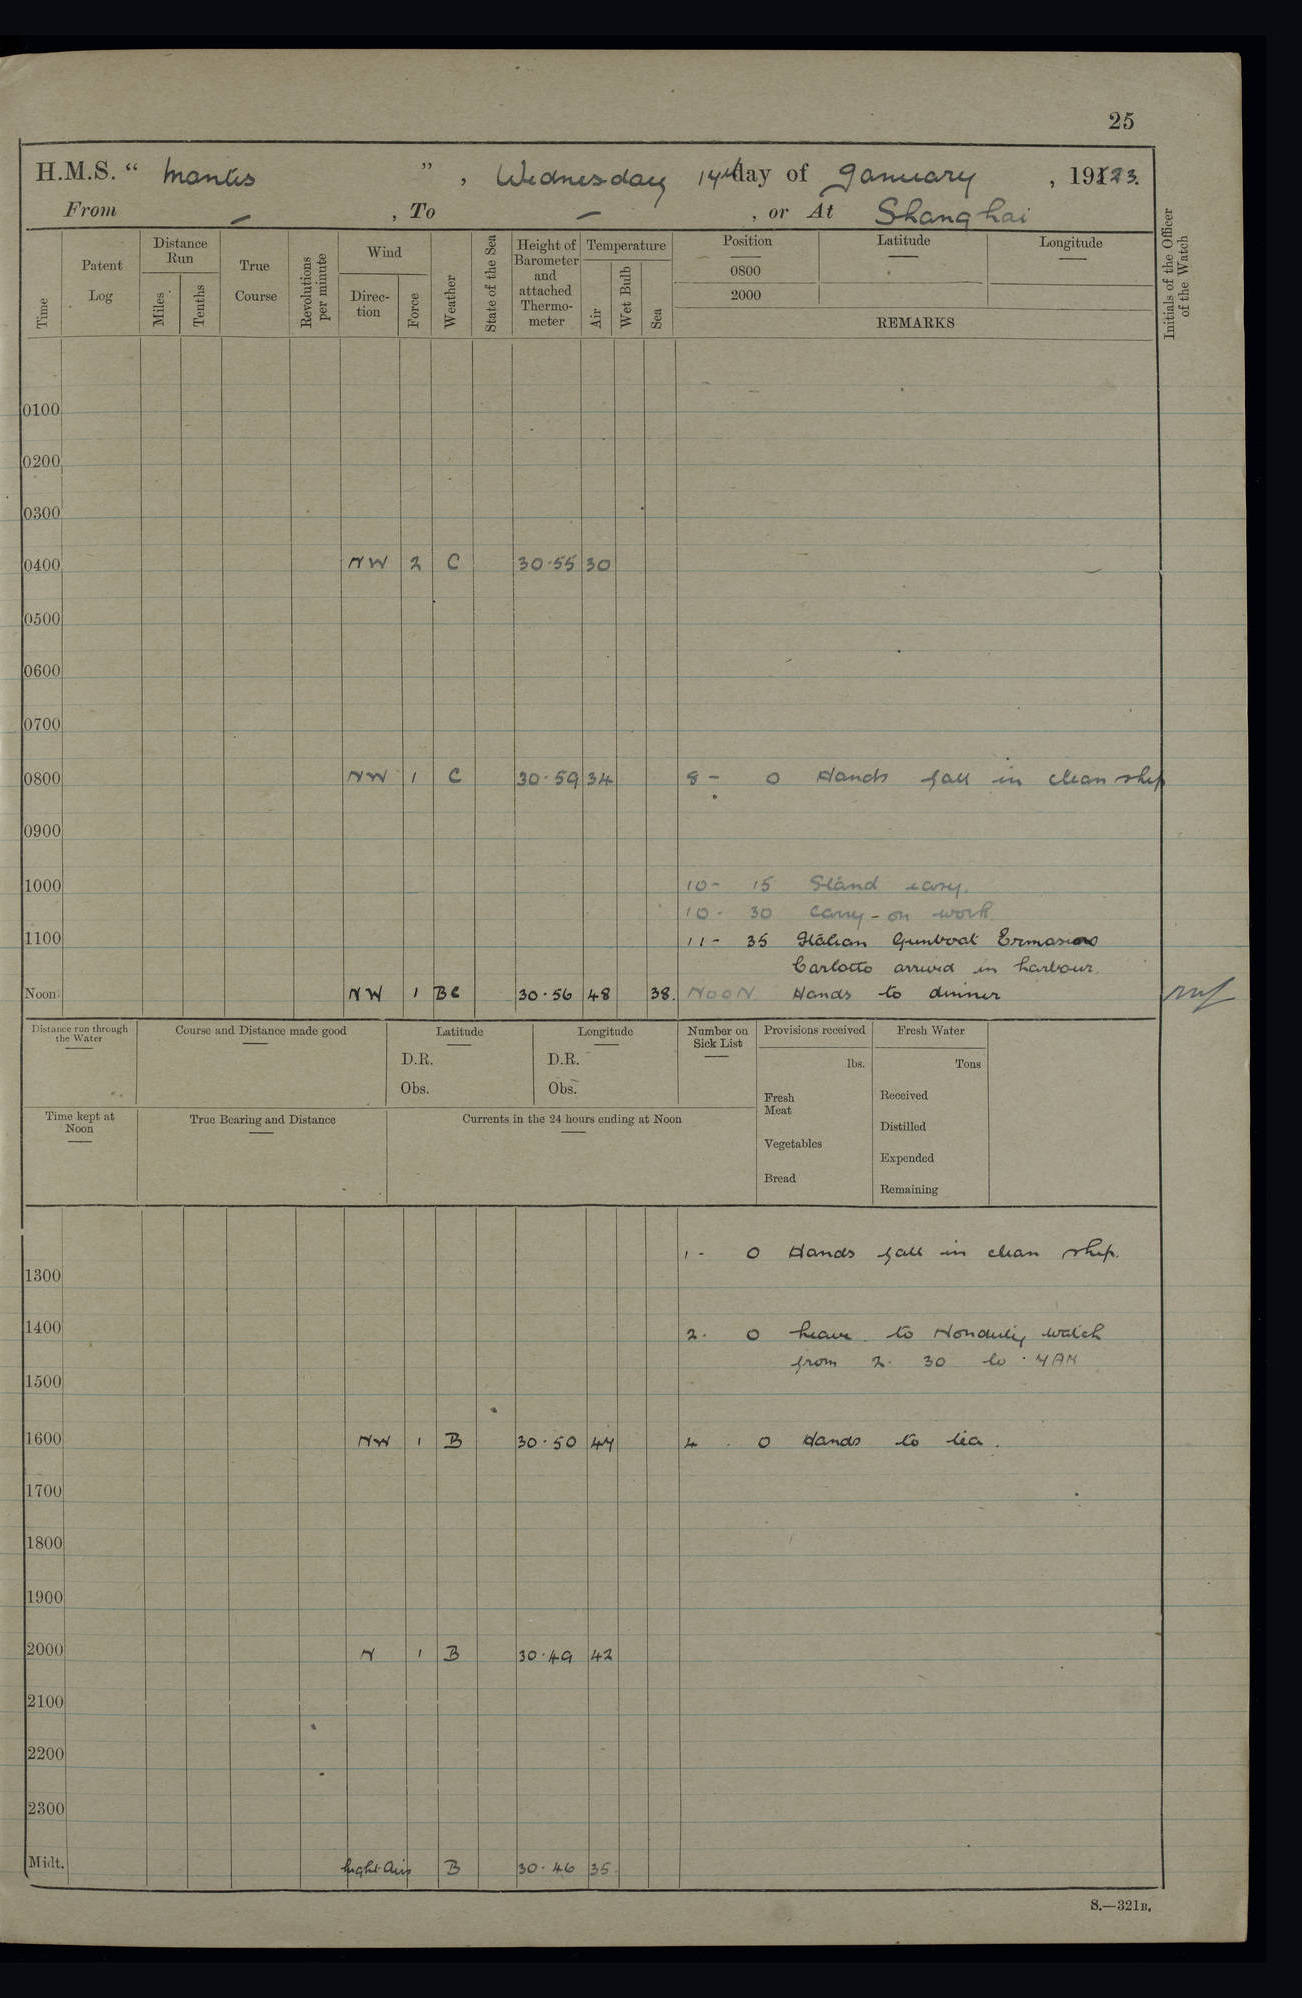 25
H.M.S. “ Mantis ” , Wednesday 14th day of January , 191 23.
From — , To — , or At Shanghai
Time
Patent Log
Distance Run
Miles
Tenths
True Course
Revolutions per minute
Wind
Direc-tion
Force
Weather
State of the Sea
Height of Barometer and attached Thermo-meter
Temperature
Air
Wet Bulb
Sea
Position
0800
2000
Latitude
Longitude
REMARKS
Initials of the Officer of the Watch
0100
0200
0300
0400 NW 2 C 30·55 30
0500
0600
0700
0800 NW 1 C 30·59 34 8 - 0 Hands fall in clean ship
0900
1000 10 - 15 Stand easy.
10 - 30 Carry - on work
1100 11 - 35 Italian Gunboat Ermanno
Carlotto arrived in harbour.
Noon NW 1 BC 30·56 48 38. NOON Hands to dinner
Distance run through the Water
Course and Distance made good
Latitude
D.R.
Obs.
Longitude
D.R.
Obs.
Number on Sick List
Provisions received
lbs.
Fresh Meat
Vegetables
Bread
Fresh Water
Tons
Received
Distilled
Expended
Remaining
Time kept at Noon
True Bearing and Distance
Currents in the 24 hours ending at Noon
1 - 0 Hands fall in clean ship.
1300
1400 2 · 0 leave to Nonduty watch
from 2 · 30 to 7AM
1500
1600 NW 1 B 30·50 47 4 . 0 Hands to tea.
1700
1800
1900
2000 N 1 B 30·49 42
2100
2200
2300
Midt. Light Airs B 30·46 35
S.—321B.